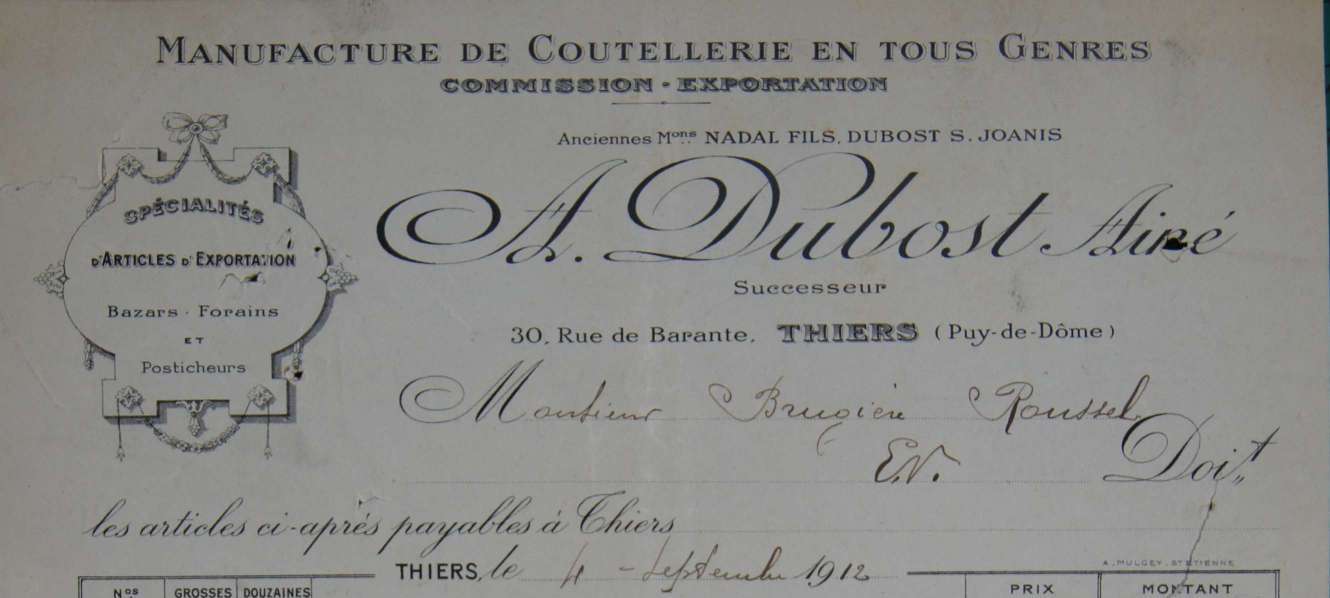 MANUFACTURE DE COUTELLERIE EN TOUS GENRES
COMMISSION - EXPORTATION
Anciennes Mons NADAL FILS, DUBOST S. JOANIS
A. Dubost Ainé
Successeur
30, Rue de Barante, THIERS (Puy-de-Dôme)
SPÉCIALITÉS
D'ARTICLES D'EXPORTATION
Bazars - Forains
ET
Posticheurs
Monsieur Brugière Roussel
E.V. Doit
les articles ci-après payables à Thiers
THIERS, le 4 - Septembre 1912
A. MULCEY. ST ETIENNE
Nos GROSSES DOUZAINES PRIX MONTANT